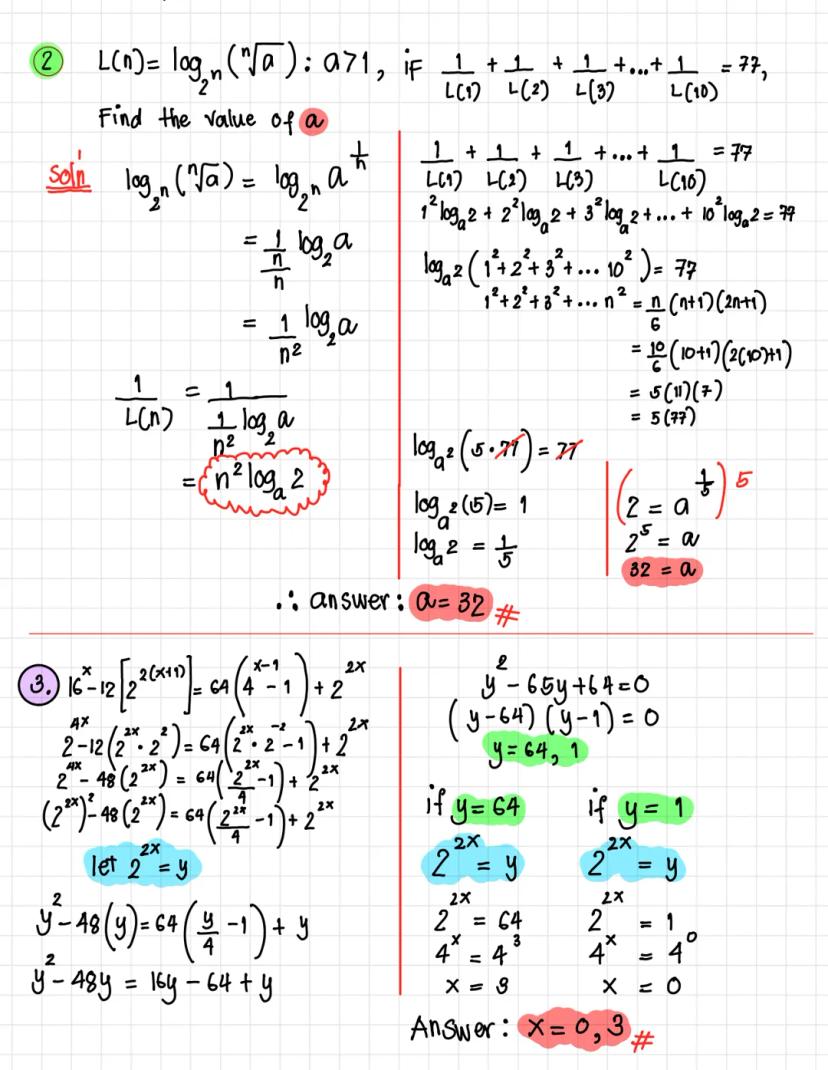 ② L(n) = log_{2^n}(ⁿ√a) : a>1, if 1/L(1) + 1/L(2) + 1/L(3) + ... + 1/L(10) = 77,
Find the value of a
Sol'n
log_{2^n}(ⁿ√a) = log_{2^n} a^{1/n}
= (1/n)/n log_2 a
= 1/n² log_2 a
1/L(n) = 1/(1/n² log_2 a)
= n² log_a 2
1/L(1) + 1/L(2) + 1/L(3) + ... + 1/L(10) = 77
1² log_a 2 + 2² log_a 2 + 3² log_a 2 + ... + 10² log_a 2 = 77
log_a 2 (1² + 2² + 3² + ... 10²) = 77
1² + 2² + 3² + ... n² = n/6 (n+1)(2n+1)
= 10/6 (10+1)(2(10)+1)
= 5(11)(7)
= 5(77)
log_a 2 (5·77) = 77
log_a 2 (5) = 1
log_a 2 = 1/5
(2 = a^{1/5})^5
2^5 = a
32 = a
∴ answer : a = 32 #
3. 16^x - 12[2^{2(x+1)}] = 64(4^{x-1} - 1) + 2^{2x}
2^{4x} - 12(2^{2x}·2²) = 64(2^{2x}·2^{-2} - 1) + 2^{2x}
2^{4x} - 48(2^{2x}) = 64(2^{2x}/4 - 1) + 2^{2x}
(2^{2x})² - 48(2^{2x}) = 64(2^{2x}/4 - 1) + 2^{2x}
let 2^{2x} = y
y² - 48(y) = 64(y/4 - 1) + y
y² - 48y = 16y - 64 + y
y² - 65y + 64 = 0
(y-64)(y-1) = 0
y = 64, 1
if y = 64
2^{2x} = y
2^{2x} = 64
4^x = 4³
x = 3
if y = 1
2^{2x} = y
2^{2x} = 1
4^x = 4^0
x = 0
Answer : x = 0, 3 #